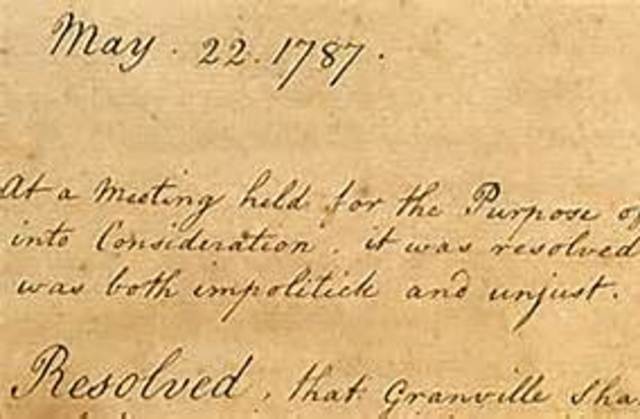 May. 22. 1787.
At a Meeting held for the Purpose of
into Consideration, it was resolved
was both impolitick and unjust.
Resolved, that Granville Sha